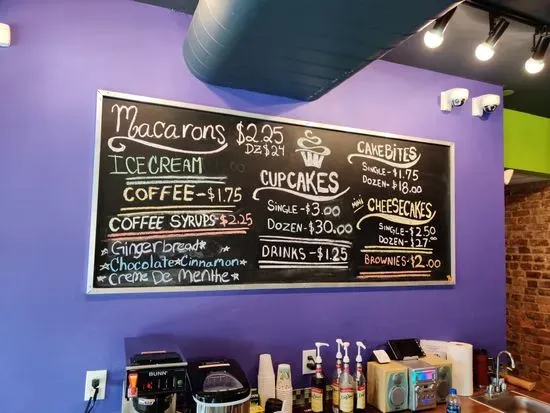 Macarons $2.25
DZ $24
ICE CREAM
COFFEE - $1.75
COFFEE SYRUPS - $2.25
Gingerbread
Chocolate Cinnamon
Creme De Menthe
CUPCAKES
SINGLE - $3.00
DOZEN - $30.00
DRINKS - $1.25
CAKEBITES
SINGLE - $1.75
DOZEN - $18.00
MINI CHEESECAKES
SINGLE - $2.50
DOZEN - $27.00
BROWNIES - $2.00
BUNN